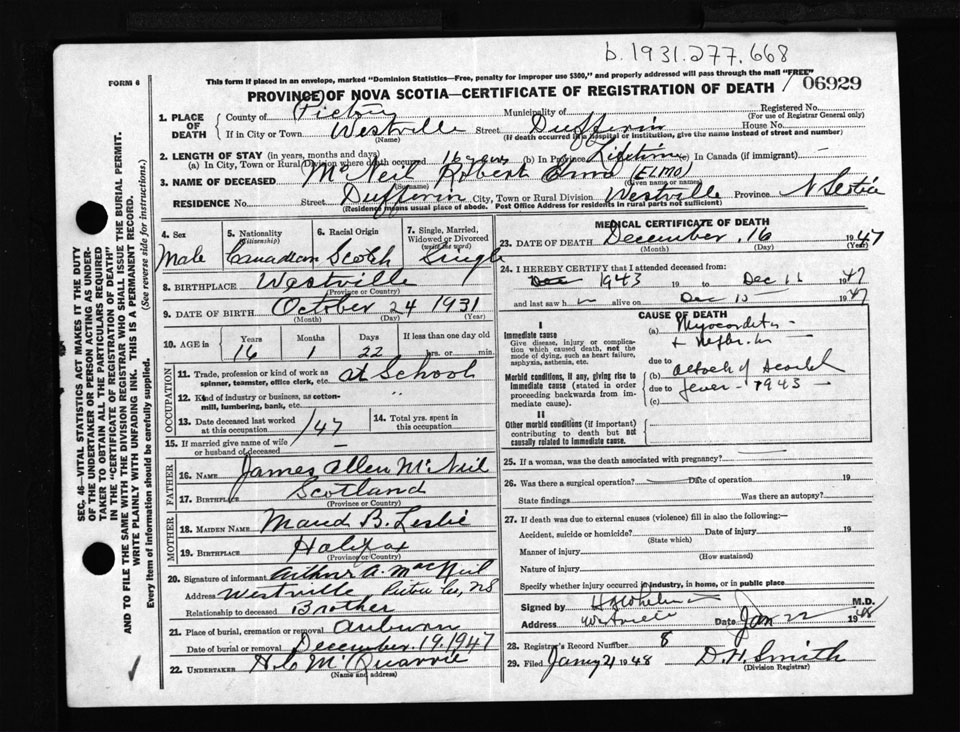 b.1931.277.668
FORM 6
This form if placed in an envelope, marked "Dominion Statistics—Free, penalty for improper use $300," and properly addressed will pass through the mail "FREE"
PROVINCE OF NOVA SCOTIA—CERTIFICATE OF REGISTRATION OF DEATH 06929
SEC. 46—VITAL STATISTICS ACT MAKES IT THE DUTY OF THE UNDERTAKER OR PERSON ACTING AS UNDERTAKER TO OBTAIN ALL THE PARTICULARS REQUIRED IN THE "CERTIFICATE OF REGISTRATION OF DEATH"
AND TO FILE THE SAME WITH THE DIVISION REGISTRAR WHO SHALL ISSUE THE BURIAL PERMIT.
WRITE PLAINLY WITH UNFADING INK. THIS IS A PERMANENT RECORD.
Every item of information should be carefully supplied. (See reverse side for instructions.)
1. PLACE OF DEATH
County of Pictou Municipality of Registered No.
(For use of Registrar General only)
If in City or Town Westville Street Dufferin House No.
(Name) (If death occurred in a hospital or institution, give the name instead of street and number)
2. LENGTH OF STAY (in years, months and days)
(a) In City, Town or Rural Division where death occurred 16 years (b) In Province Lifetime (c) In Canada (if immigrant) —
3. NAME OF DECEASED McNeil Robert Elmo (ELMO)
(Surname) (Given name or names)
RESIDENCE No. Street Dufferin City, Town or Rural Division Westville Province N Scotia
(Residence means usual place of abode. Post Office Address for residents in rural parts not sufficient)
4. Sex
Male
5. Nationality (Citizenship)
Canadian
6. Racial Origin
Scotch
7. Single, Married, Widowed or Divorced (write the word)
Single
8. BIRTHPLACE Westville
(Province or Country)
9. DATE OF BIRTH October 24 1931
(Month) (Day) (Year)
10. AGE in Years Months Days If less than one day old
16 1 22 hrs. or min.
OCCUPATION
11. Trade, profession or kind of work as spinner, teamster, office clerk, etc. at School
12. Kind of industry or business, as cotton-mill, lumbering, bank, etc. "
13. Date deceased last worked at this occupation /47
14. Total yrs. spent in this occupation
15. If married give name of wife or husband of deceased —
FATHER
16. Name James Allen McNeil
17. Birthplace Scotland
(Province or Country)
MOTHER
18. Maiden Name Maud B. Leslie
19. Birthplace Halifax
(Province or Country)
20. Signature of informant Arthur A. MacNeil
Address Westville Pictou Co, NS
Relationship to deceased Brother
21. Place of burial, cremation or removal Auburn
Date of burial or removal December 19, 1947
22. UNDERTAKER H.C. McQuarrie
(Name and address)
MEDICAL CERTIFICATE OF DEATH
23. DATE OF DEATH December 16 1947
(Month) (Day) (Year)
24. I HEREBY CERTIFY that I attended deceased from:
Dec 1943 19 to Dec 16 1947
and last saw h alive on Dec 10 1947
CAUSE OF DEATH
I
Immediate cause
Give disease, injury or complication which caused death, not the mode of dying, such as heart failure, asphyxia, asthenia, etc.
(a) Myocarditis
+ Nephritis
due to
Morbid conditions, if any, giving rise to immediate cause (stated in order proceeding backwards from immediate cause).
(b) attack of Scarlet
due to fever - 1943 —
(c)
II
Other morbid conditions (if important) contributing to death but not causally related to immediate cause.
25. If a woman, was the death associated with pregnancy? —
26. Was there a surgical operation? — Date of operation 19
State findings Was there an autopsy?
27. If death was due to external causes (violence) fill in also the following:
Accident, suicide or homicide? Date of injury 19
(State which)
Manner of injury
(How sustained)
Nature of injury
Specify whether injury occurred in industry, in home, or in public place
Signed by M.D.
Address Westville Date Jan 22 1948
28. Registrar's Record Number 8
29. Filed 1948 D. H. Smith
(Division Registrar)